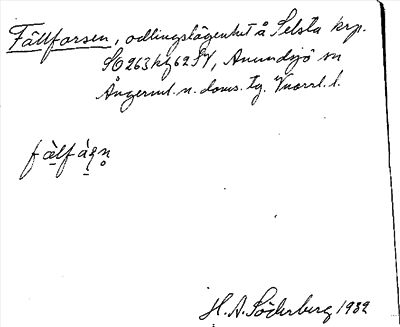 Fällforsen, odlingslägenhet å Selsta krp.
SO 263 kg 62 SV, Anundsjö sn
Ångerml. n. doms. tg. Vnorrl. l.
fälfạ̀ʂn̥
H. A. Söderberg 1932